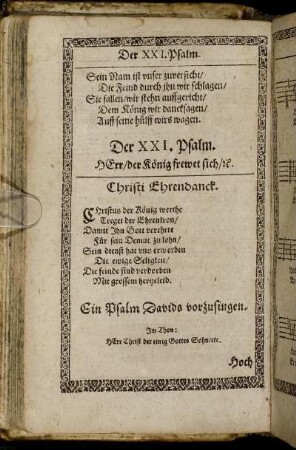 Der XXI. Psalm.
Sein Nam ist vnser zuversicht/
Die Feind durch jhn wir schlagen/
Sie fallen/ wir stehn auffgericht/
Dem König wir dancksagen/
Auff seine hülff wirs wagen.
Der XXI. Psalm.
HErr/ der König frewet sich/ ꝛc.
Christi Ehrendanck.
CHristus der König werthe
Treget der Ehrenkron/
Damit Jhn Gott verehrte
Für sein Demut zu lohn/
Sein dienst hat vns erworben
Die ewige Seligkeit/
Die feinde sind verdorben
Mit grossem hertzeleid.
Ein Psalm Davids vorzusingen.
Jm Thon:
HErr Christ der einig Gottes Sohn/ etc.
Hoch